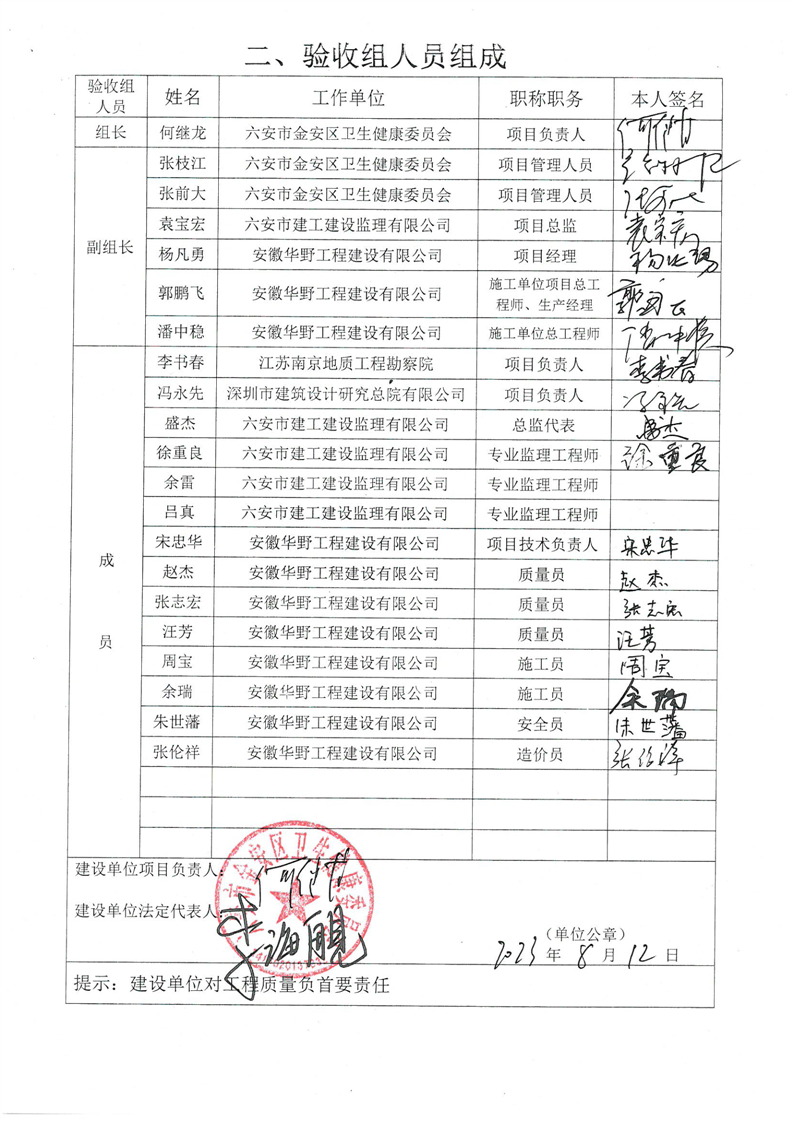 二、验收组人员组成
验收组人员 姓名 工作单位 职称职务 本人签名
组长 何继龙 六安市金安区卫生健康委员会 项目负责人
副组长
张枝江 六安市金安区卫生健康委员会 项目管理人员
张前大 六安市金安区卫生健康委员会 项目管理人员
袁宝宏 六安市建工建设监理有限公司 项目总监 袁宝宏
杨凡勇 安徽华野工程建设有限公司 项目经理
郭鹏飞 安徽华野工程建设有限公司 施工单位项目总工程师、生产经理
潘中稳 安徽华野工程建设有限公司 施工单位总工程师
成员
李书春 江苏南京地质工程勘察院 项目负责人 李书春
冯永先 深圳市建筑设计研究总院有限公司 项目负责人
盛杰 六安市建工建设监理有限公司 总监代表 盛杰
徐重良 六安市建工建设监理有限公司 专业监理工程师 徐重良
余雷 六安市建工建设监理有限公司 专业监理工程师
吕真 六安市建工建设监理有限公司 专业监理工程师
宋忠华 安徽华野工程建设有限公司 项目技术负责人 宋忠华
赵杰 安徽华野工程建设有限公司 质量员 赵杰
张志宏 安徽华野工程建设有限公司 质量员 张志宏
汪芳 安徽华野工程建设有限公司 质量员 汪芳
周宝 安徽华野工程建设有限公司 施工员 周宝
余瑞 安徽华野工程建设有限公司 施工员 余瑞
朱世藩 安徽华野工程建设有限公司 安全员 朱世藩
张伦祥 安徽华野工程建设有限公司 造价员 张伦祥
建设单位项目负责人：
建设单位法定代表人：
（单位公章）
2023 年 8 月 12 日
提示：建设单位对工程质量负首要责任